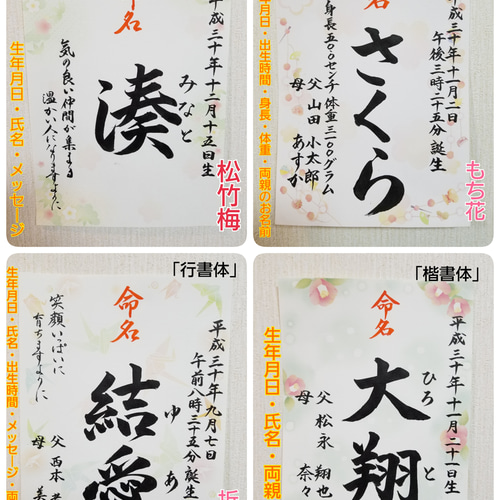 命名
平成三十年十二月十五日生
みなと
湊
気の良い仲間が集まる
温かい人になりますように
生年月日・氏名・メッセージ
松竹梅
名
平成三十年十一月二日
午後三時二十五分誕生
さくら
身長五〇センチ体重三一〇〇グラム
父山田小太郎
母あすか
生年月日・出生時間・身長・体重・両親のお名前
もち花
「行書体」
命名
平成三十年九月七日
午前八時三十五分誕生
ゆあ
結愛
笑顔いっぱいに
育ちますように
父西本
母美
生年月日・氏名・出生時間・メッセージ・両
折
「楷書体」
命名
平成三十年十一月二十一日生
ひろと
大翔
父松永翔也
母奈々
生年月日・氏名・両親